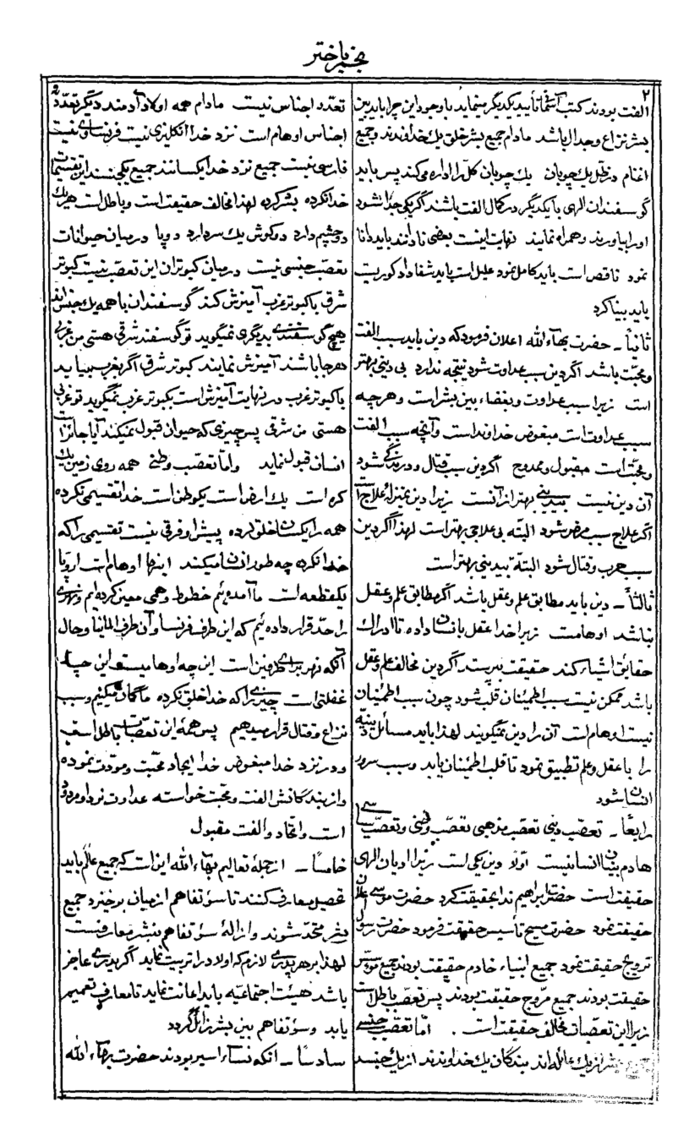 نجم باختر
۲
الفت بودند کتب آسمانی تأیید یکدیگر مینماید با وجود این چرا باید بین
بشر نزاع و جدال باشد مادام جمیع بشر خلق یک خداوندند و جمیع
اغنام در ظل یک چوپان یک چوپان کل را اداره میکند پس باید
گوسفندان الهی با یکدیگر در کمال الفت باشند اگر یکی جدا شود
او را بیاورند و همراه نمایند نهایت اینست بعضی نادانند باید دانا
نمود ناقص است باید کامل نمود علیل است باید شفا داد کور است
باید بینا کرد
ثانیاً ــ حضرت بهآءالله اعلان فرمود که دین باید سبب الفت
و محبّت باشد اگر دین سبب عداوت شود نتیجه ندارد بی دینی بهتر
است زیرا سبب عداوت و بغضاء بین بشر است و هرچه
سبب عداوت است مبغوض خداوند است و آنچه سبب الفت
و محبّت است مقبول و ممدوح اگر دین سبب قتال و درندگی شود
آن دین نیست بیدینی بهتر از آنست زیرا دین بمنزله علاج است
اگر علاج سبب مرض شود البته بی علاجی بهتر است لهذا اگر دین
سبب حرب و قتال شود البتّه بیدینی بهتر است
ثالثاً ــ دین باید مطابق علم و عقل باشد اگر مطابق علم و عقل
نباشد اوهامست زیرا خدا عقل بانسان داده تا ادراک
حقایق اشیاء کند حقیقت بپرستد اگر دین مخالف علم و عقل
باشد ممکن نیست سبب اطمینان قلب شود چون سبب اطمینان
نیست اوهام است آن را دین نمیگویند لهذا باید مسائل دینیّه
را با عقل و علم تطبیق نمود تا قلب اطمینان یابد و سبب سرور
انسان شود
رابعاً ــ تعصّب دینی تعصّب مذهبی تعصّب وطنی و تعصّب سیاسی
هادم بنیان انسانیست اولا دین یکی است زیرا ادیان الهی
حقیقت است حضرت ابراهیم ندا بحقیقت کرد حضرت موسی اعلان
حقیقت نمود حضرت مسیح تأسیس حقیقت فرمود حضرت رسول
ترویج حقیقت نمود جمیع انبیاء خادم حقیقت بودند جمیع مؤسس
حقیقت بودند جمیع مروج حقیقت بودند پس تعصّب باطل است
زیرا این تعصبات مخالف حقیقت است . امّا تعصّب جنسی
جمیع بشر از یک عائله‌اند بندگان یک خداوندند از یک جنسند
تعدّد اجناس نیست مادام همه اولاد آدمند دیگر تعدّد
اجناس اوهام است نزد خدا انگلیزی نیست فرنساوی نیست
فارسی نیست جمیع نزد خدا یکسانند جمیع یک جنسند این تقسیمات را
خدا نکرده بشر کرده لهذا مخالف حقیقت است و باطل است هر یک
دو چشم دارد دو گوش یک سر دارد دو پا در میان حیوانات
تعصّب جنسی نیست در میان کبوتران این تعصّب نیست کبوتر
شرق با کبوتر غرب آمیزش کند گوسفندان با همه یک جنسند
هیچ گوسفندی بدیگری نمیگوید تو گوسفند شرقی هستی من غربی
هرجا باشند آمیزش نمایند کبوتر شرق اگر بغرب بیاید
با کبوتر غرب در نهایت آمیزش است بکبوتر غرب نمیگوید تو غربی
هستی من شرقی پس چیزی که حیوان قبول نمیکند آیا جائز است
انسان قبول نماید و امّا تعصّب وطنی همه روی زمین یک
کره است یک ارض است یک وطن است خدا تقسیمی نکرده
همه را یکسان خلق کرده پیش او فرقی نیست تقسیمی را که
خدا نکرده چه طور انسان میکند اینها اوهام است اروپا
یک قطعه است ما آمده‌ئیم خطوط وهمی معین کرده‌ایم و نهری
را حدّ قرار داده‌ئیم که این طرف فرنسا و آن طرف المانیا و حال
آنکه نهر برای طرفین است این چه اوهامیست این چه
غفلتی است چیزی را که خدا خلق نکرده ما گمان میکنیم و سبب
نزاع و قتال قرار میدهیم پس همهٔ این تعصّبات باطل است
و در نزد خدا مبغوض خدا ایجاد محبّت و مودّت نموده
و از بندگانش الفت و محبت خواسته عداوت نزد او مردود
است و اتّحاد و الفت مقبول
خامساً ــ از جملهٔ تعالیم بهآءالله این است که جمیع عالم باید
تحصیل معارف کنند تا سوء تفاهم از میان برخیزد جمیع
بشر متّحد شوند و ازالهٔ سوء تفاهم بنشر معارفست
لهذا بر هر پدری لازم که اولاد را تربیت نماید اگر پدری عاجز
باشد هیئت اجتماعیّه باید اعانت نماید تا معارف تعمیم
یابد و سوء تفاهم بین بشر زائل گردد
سادساً ــ آنکه نسآء اسیر بودند حضرت بهآءالله